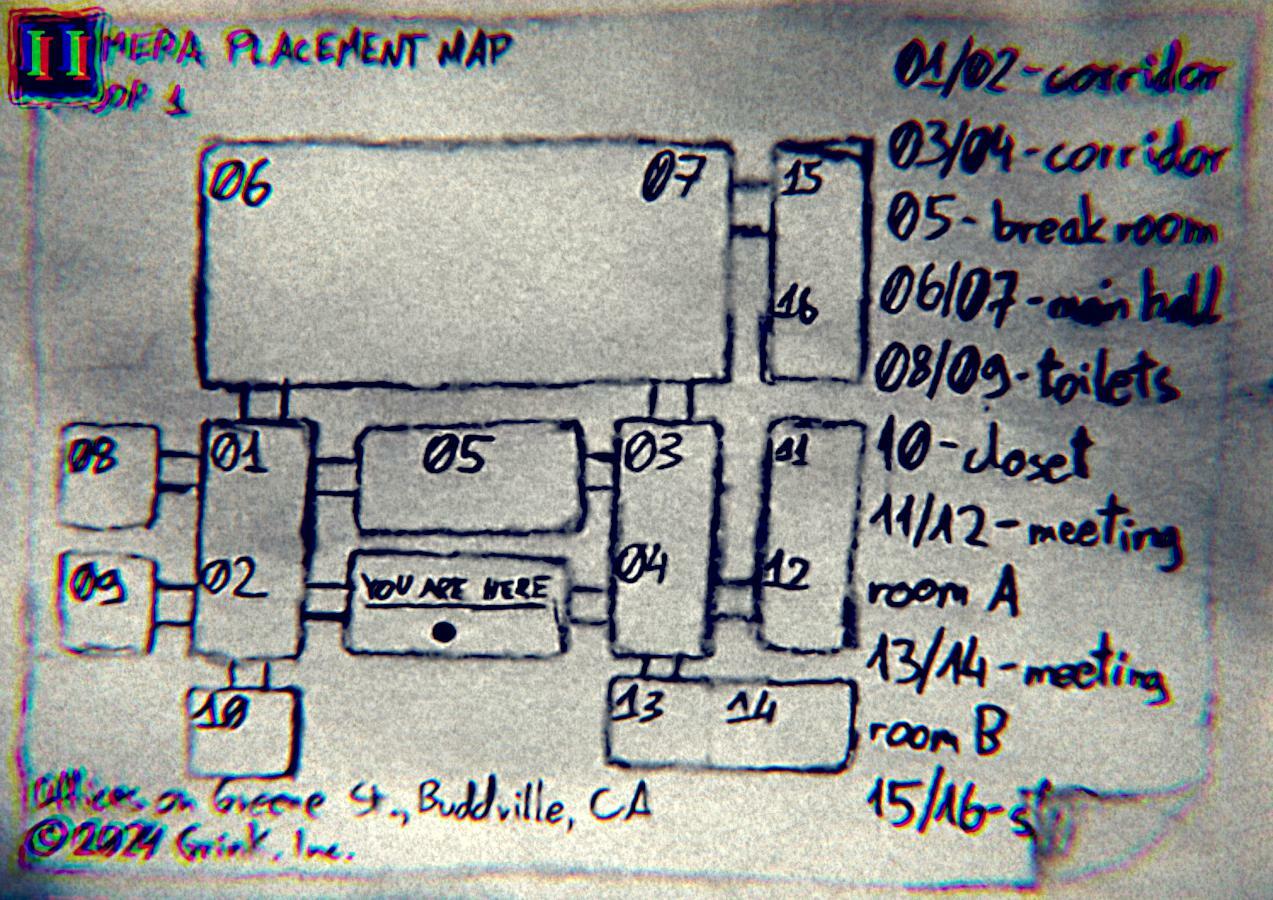 II
MERA PLACEMENT MAP
OOR 1
01/02-corridor
03/04-corridor
05-break room
06/07-main hall
08/09-toilets
10-closet
11/12-meeting
room A
13/14-meeting
room B
15/16-s
06
07
15
16
08
01
05
03
11
09
02
YOU ARE HERE
04
12
10
13
14
Offices on Greene St., Buddville, CA
© 2024 Grink, Inc.